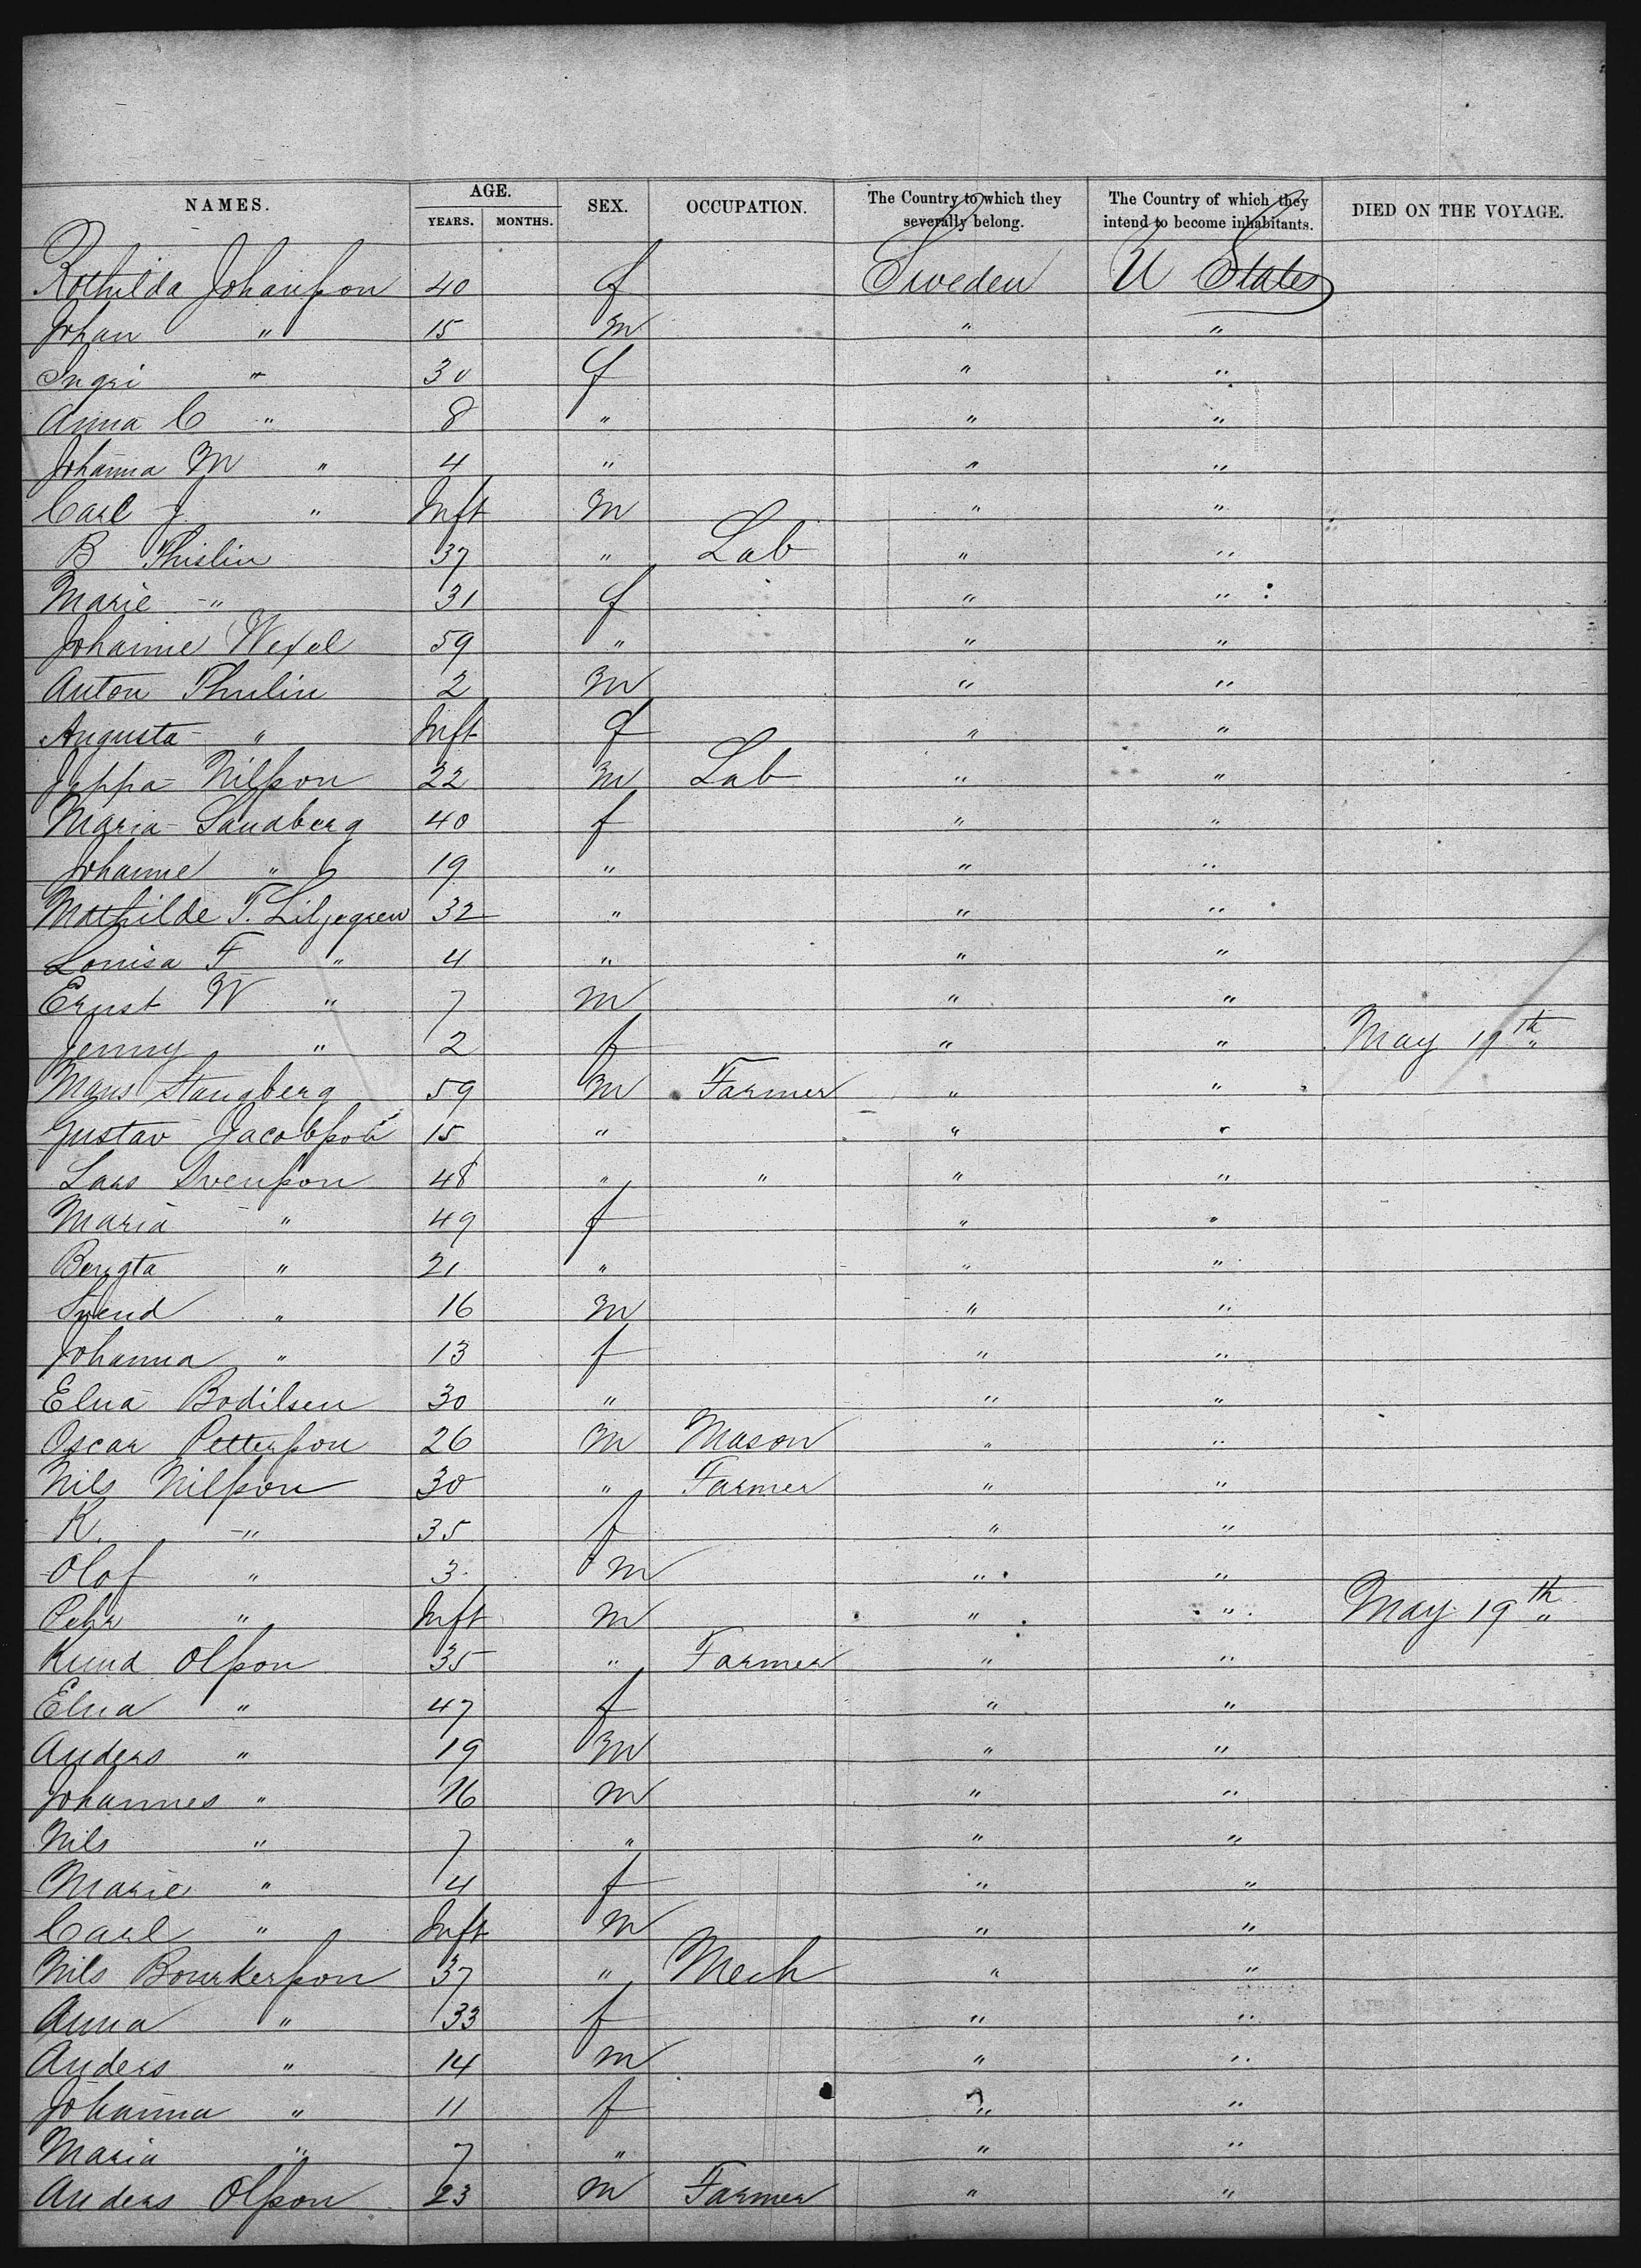 NAMES. AGE. YEARS. MONTHS. SEX. OCCUPATION. The Country to which they severally belong. The Country of which they intend to become inhabitants. DIED ON THE VOYAGE.
Johansson 40 f Sweden U States
Johan " 15 m " "
Ingri " 30 f " "
Anna C " 8 " " "
Johanna M " 4 " " "
Carl J " Inft m " "
B Thislin 37 " Lab " "
Marie " 31 f " "
Johanne Wexel 59 " " "
Anton Thulin 2 m " "
Augusta " Inft f " "
Jeppa Nilsson 22 m Lab " "
Maria Sandberg 40 f " "
Johanne " 19 " " "
Mathilde T. Liljegren 32 " " "
Louisa F " 4 " " "
Ernst W " 7 m " "
Jenny " 2 f " " May 19th "
Mans Stangberg 59 m Farmer " "
Gustav Jacobsson 15 " " "
Lars Svensson 48 " " " "
Maria " 49 f " "
Bengta " 21 " " "
Svend " 16 m " "
Johanna " 13 f " "
Elna Bodilsen 30 " " "
Oscar Pettersson 26 m Mason " "
Nils Nilsson 30 " Farmer " "
K. " 35 f " "
Olof " 3 m " "
Pehr " Inft m " " May 19th "
Knud Olsson 35 " Farmer " "
Elna " 47 f " "
Anders " 19 m " "
Johannes " 16 m " "
Nils " 7 " " "
Marie " 4 f " "
Carl " Inft m " "
Nils 37 " Mech " "
Anna " 33 f " "
Anders " 14 m " "
Johanna " 11 f " "
Maria " 7 " " "
Anders Olsson 23 m Farmer " "